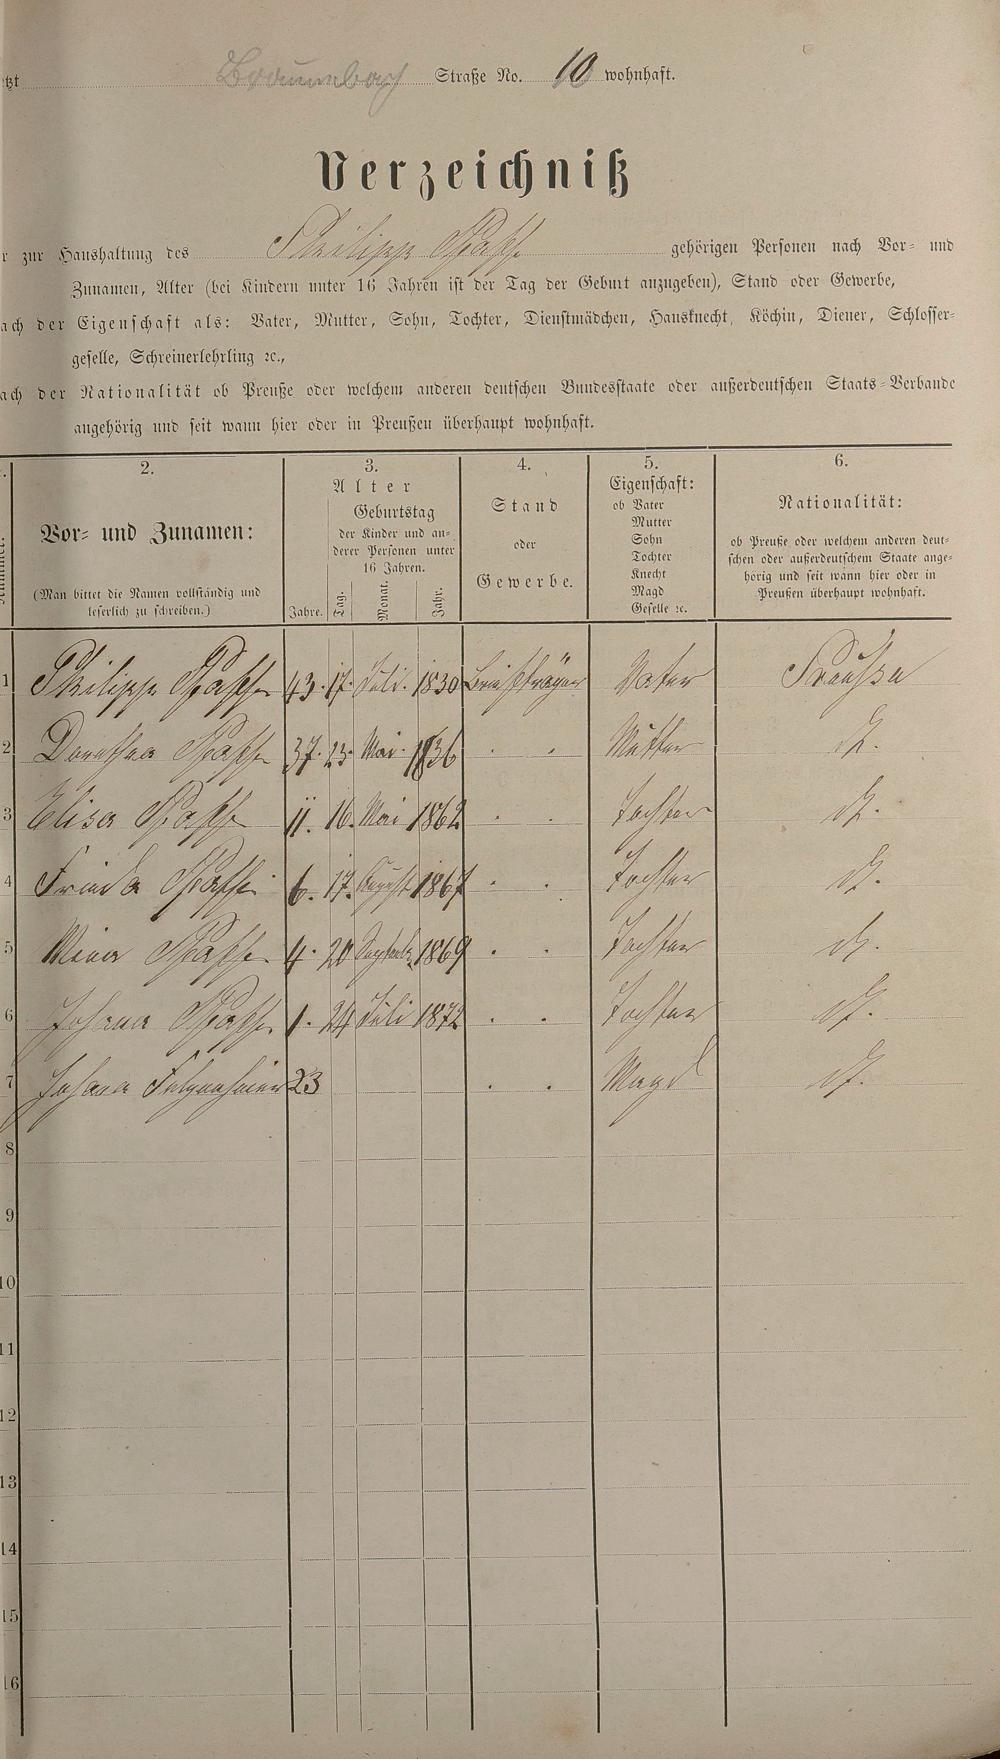 tzt Braumbach Straße No. 10 wohnhaft.
Verzeichniß
r zur Haushaltung des Philipp gehörigen Personen nach Vor- und
Zunamen, Alter (bei Kindern unter 16 Jahren ist der Tag der Geburt anzugeben), Stand oder Gewerbe,
ach der Eigenschaft als: Vater, Mutter, Sohn, Tochter, Dienstmädchen, Hausknecht, Köchin, Diener, Schlosser-
geselle, Schreinerlehrling ꝛc.,
ach der Nationalität ob Preuße oder welchem anderen deutschen Bundesstaate oder außerdeutschen Staats-Verbande
angehörig und seit wann hier oder in Preußen überhaupt wohnhaft.
2.
Vor- und Zunamen:
(Man bittet die Namen vollständig und
leserlich zu schreiben.)
3.
Alter
Geburtstag
der Kinder und an-
derer Personen unter
16 Jahren.
Jahre. Tag. Monat. Jahr.
4.
Stand
oder
Gewerbe.
5.
Eigenschaft:
ob Vater
Mutter
Sohn
Tochter
Knecht
Magd
Geselle ꝛc.
6.
Nationalität:
ob Preuße oder welchem anderen deut-
schen oder außerdeutschem Staate ange-
hörig und seit wann hier oder in
Preußen überhaupt wohnhaft.
1 Philipp 43. 17. Juli. 1830 Briefträger Vater Preuße
2 Dorothea 37. 23. Mai. 1836 Mutter d.
3 Elisa 11. 16. Mai 1862 Tochter d.
4 Frieda 6. 17. August 1867 Tochter d.
5 Mina 4. 20 September 1869 Tochter d.
6 Johana 1. 24 Juli 1872 Tochter d.
7 Johana 23 Magd d.
8
9
10
11
12
13
14
15
16